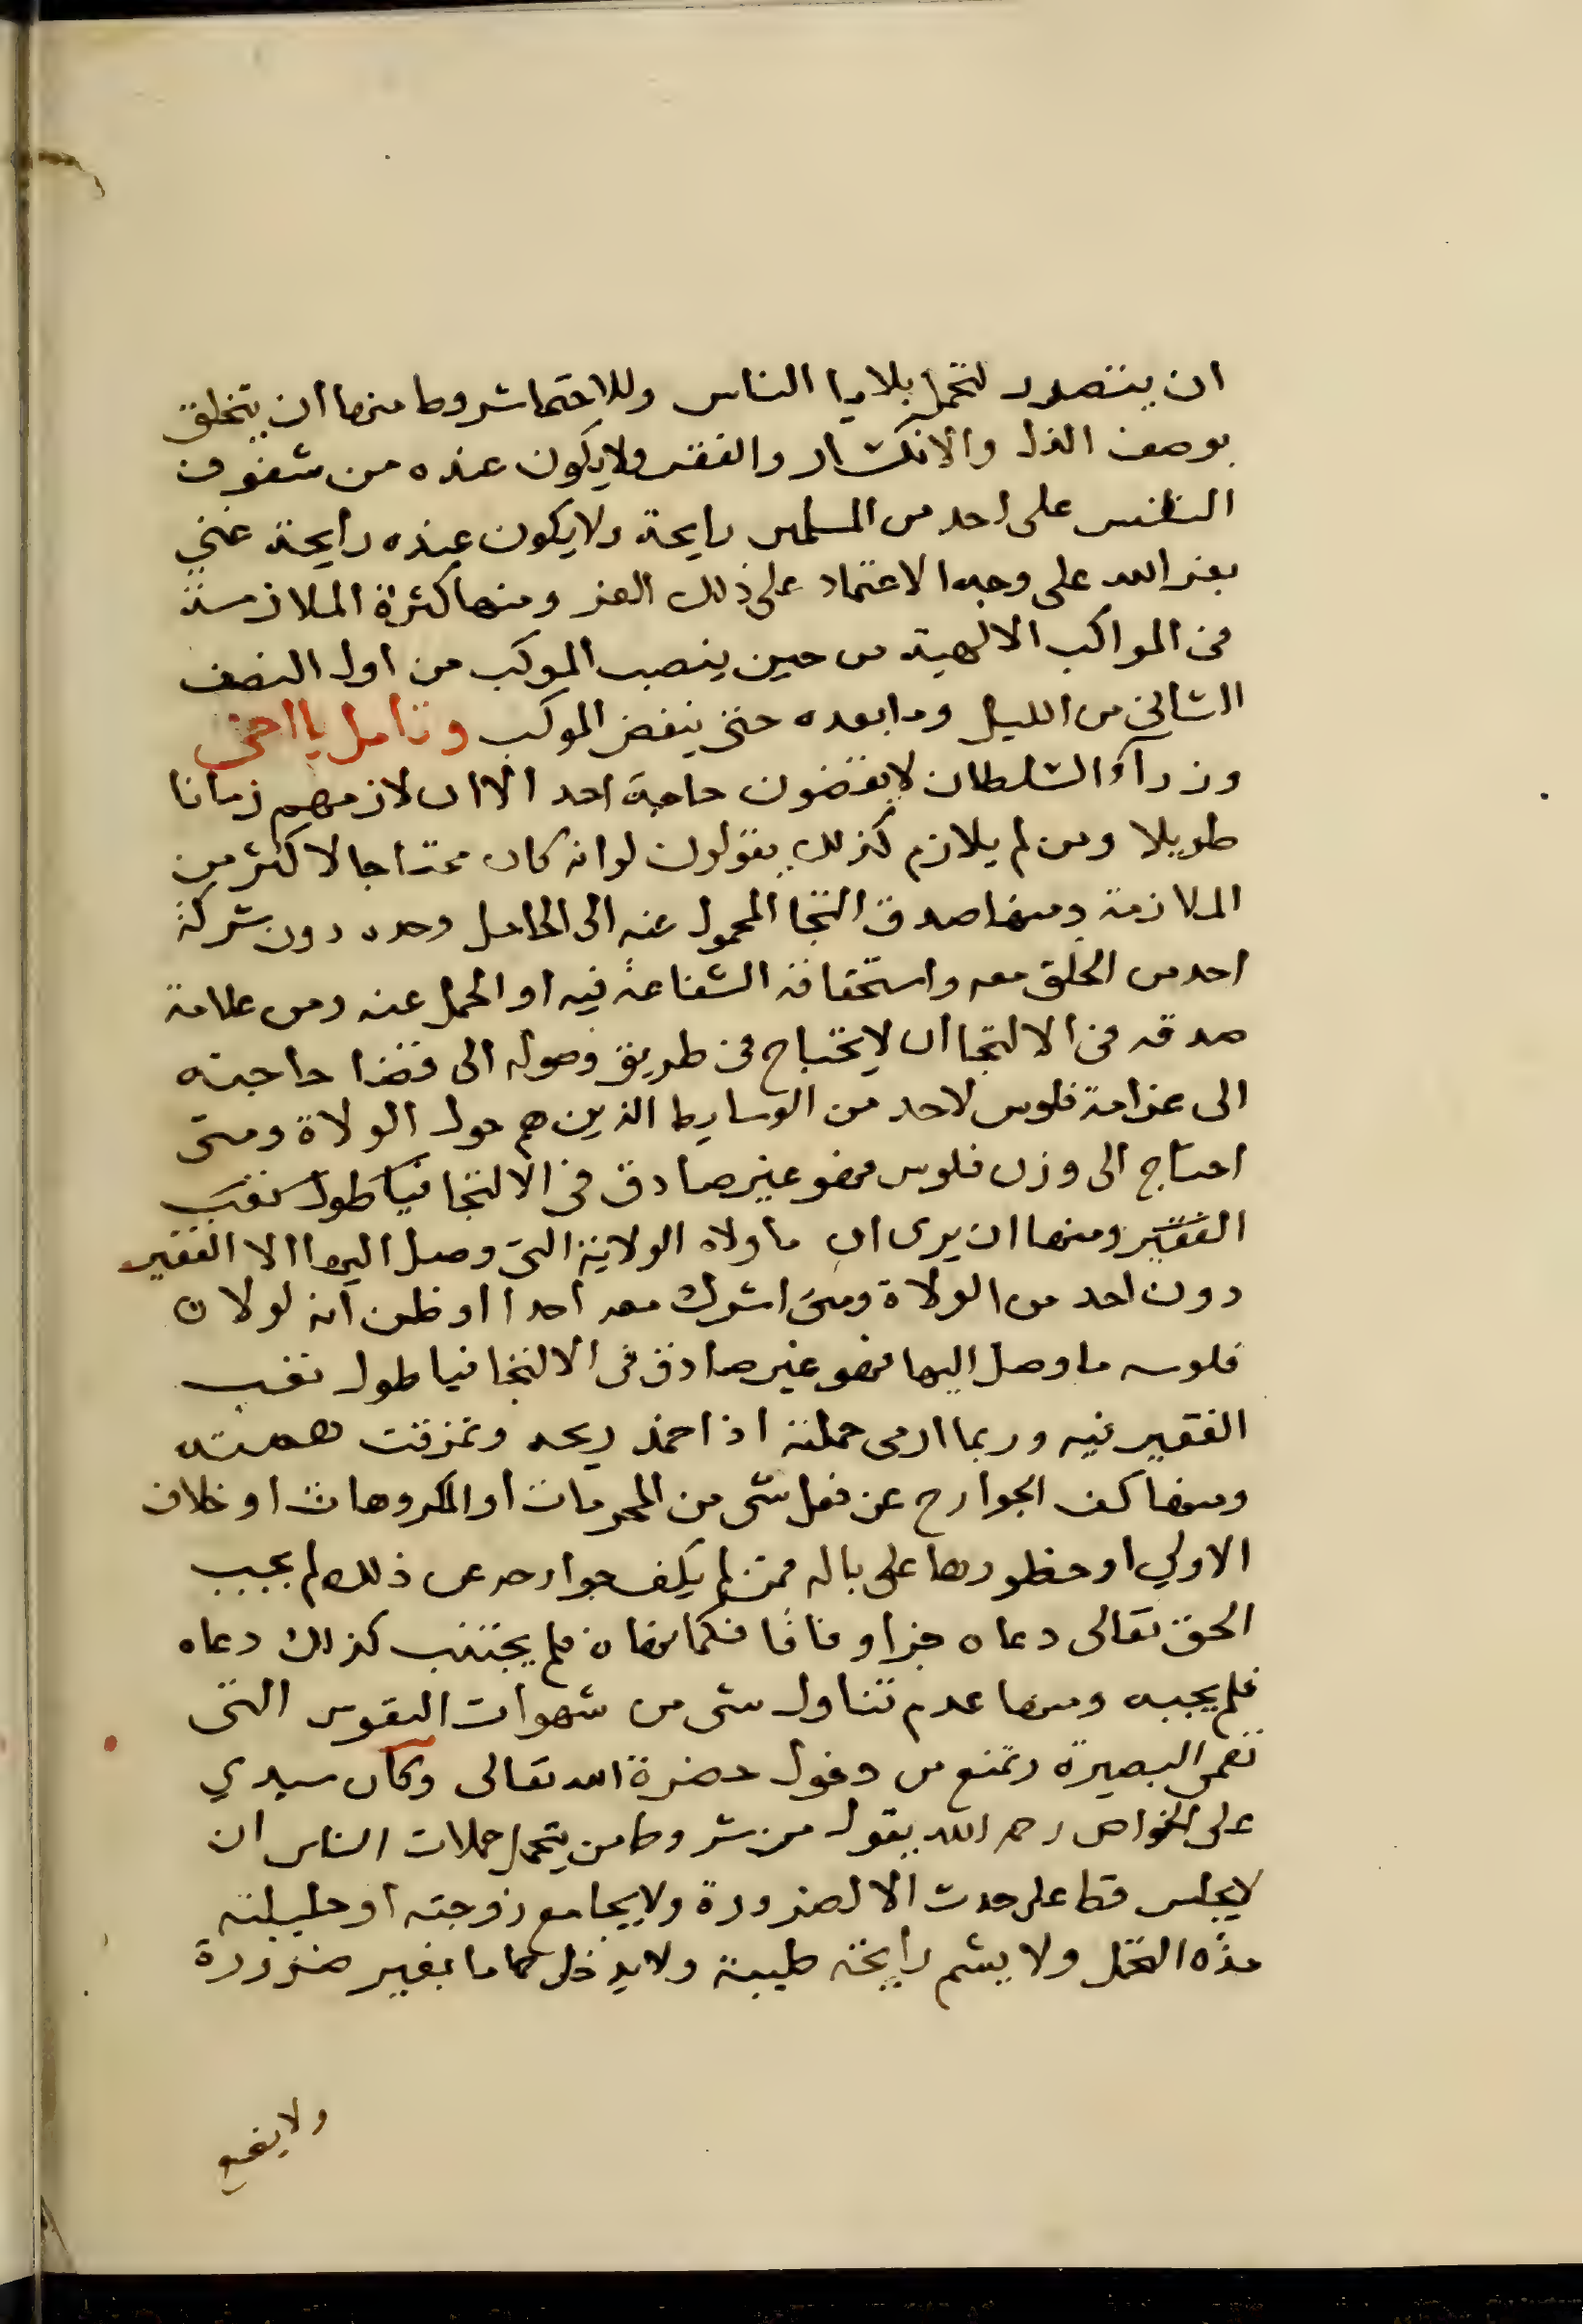 ان يتصدر لتحمل بلايا الناس وللاحتما شروط منها ان يتخلق
بوصف الذل والانكسار والفقر ولا يكون عنده من شفوف
النفس على احد من المسلمين رايحة ولا يكون عنده رايحة غني
بغير الله على وجه الاعتماد على ذلك الغير ومنها كثرة الملازمة
في المواكب الالهية من حين ينصب الموكب من اول النصف
الثاني من الليل وما بعده حتى ينفض الموكب وتامل يا اخي
وزرآؤ السلطان لا يقضون حاجة احد الا ان لازمهم زمانا
طويلا ومن لم يلازم كذلك يقولون لو انه كان محتاجا لاكثر من
الملازمة ومنها صدق التجا المحمول عنه الى الحامل وحده دون شركة
احد من الخلق معه واستحقاقه الشفاعة فيه او الحمل عنه ومن علامة
صدقه في الالتجا ان لا يحتاج في طريق وصوله الى قضا حاجته
الى غرامة فلوس لاحد من الوسايط الذين هم حول الولاة ومتى
احتاج الى وزن فلوس فهو غير صادق في الالتجا فيا طول تعب
الفقير ومنها ان يرى ان ما ولاه الولاية التي وصل اليها الا الفقير
دون احد من الولاة ومتى اشرك معه احدا او ظن انه لولا ن
فلوسه ما وصل اليها فهو غير صادق في الالتجا فيا طول تعب
الفقير فيه وربما ارمى حملته اذا خمد ريحه وتمزقت همته
ومنها كف الجوارح عن فعل شي من المحرمات او المكروهات او خلاف
الاولي او خطورها على باله فمن لم يكف جوارحه عن ذلك لم يجب
الحق تعالى دعاه جزا وفاقا فكما نهاه فلم يجتنب كذلك دعاه
فلم يجبه ومنها عدم تناول شي من شهوات النفوس التي
تعمي البصيرة وتمنع من دخول حضرة الله تعالى وكان سيدي
على الخواص رحمه الله يقول من شروط من يتحمل حملات الناس ان
لا يجلس قط على حدث الا لضرورة ولا يجامع زوجته او حليلته
مدة التحمل ولا يشم رايحة طيبة ولا يدخل حماما بغير ضرورة
ولا يضع